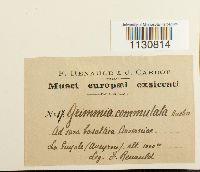 1130814
F. RENAULD & J. CARDOT
Musci europæi exsiccati
Grimmia commutata
Ad saxa basaltica
La Guyole (Aveyron) alt. 1000 m
Leg. F. Renauld